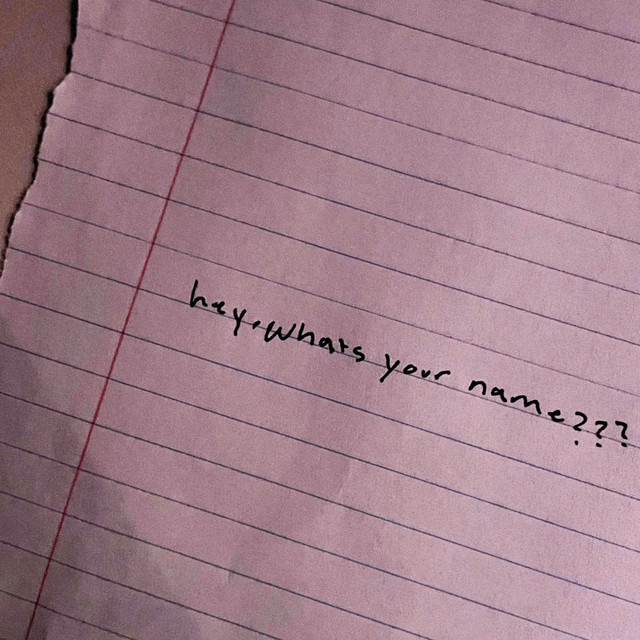 hey, whats your name???